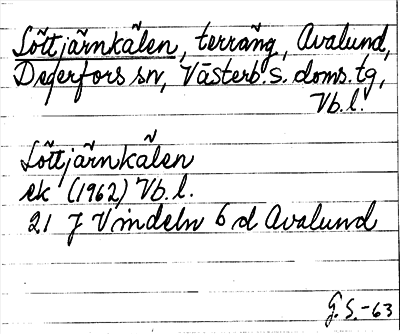 Löttjärnkälen, terräng, Avalund,
Degerfors sn, Västerb. s. doms. tg,
Vb. l.
Löttjärnkälen
ek (1962) Vb. l.
21 J Vindeln 6 d Avalund
G. S. -63